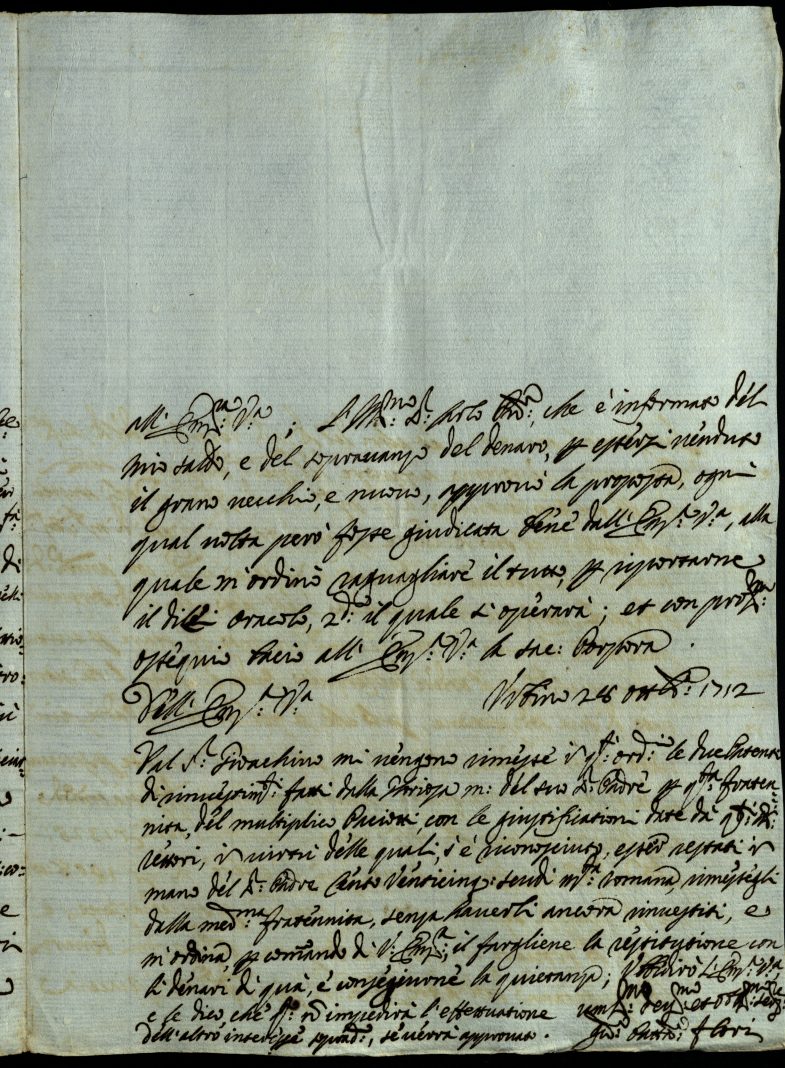 all' Em.ra V.a; L'Ill.mo S.r che è informato del
mio saldo, e del sopravanzo del denaro, p essersi venduto
il grano vecchio, e nuovo, approvò la proposta, ogni
qual volta però fosse giudicata bene dall' Em.a V.a, alla
quale m'ordinò raguagliare il tutto, p riportarne
il di lei oracolo, 2.do il quale si operarà; et con prof.ma
ossequio bacio all' Em.a V.a la sac: Porpora.
Dell' Em.a V.a Urbino 28 ott.bre 1712
Dal S.r Gioachino mi vengono rimesse i q.ti ord.i le due
di rinvestim.ti fatti dalla m: del suo S.r Padre p q.sta frater-
nita, del multiplico con le giustificationi date da
rettori, in virtù delle quali, s'è riconosciuto, esser restati in
mano del S.r Padre Cento Venticinq: scudi m.ta romana rimessegli
dalla med.ma fraternita, senza haverli ancora rinvestiti, e
m'ordina, p comando di V. Em.a, il fargliene la restitutione con
li denari di quà, e conseguirne la quietanza; Ubbidirò l'Em.a V.a,
e le dico che impedirà l'effettuatione um.mo dev.mo et obl.mo ser.re
dell'altro interesse, se verrà approvato. Gio: Flori